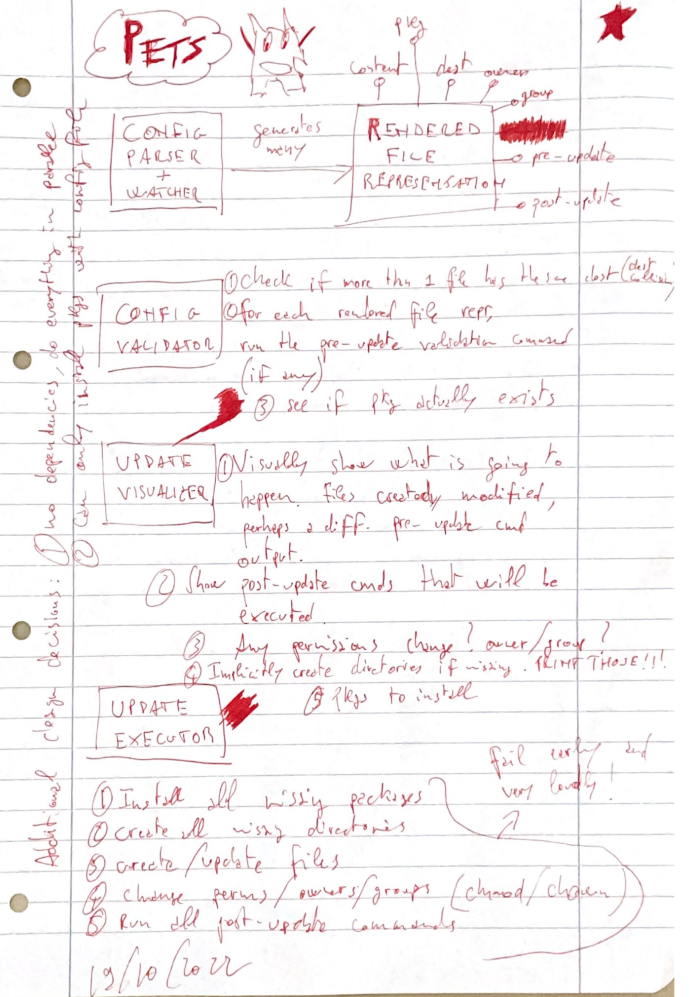 PETS
pkg
content dest owner
group
CONFIG
PARSER
+
WATCHER
generates
many
RENDERED
FILE
REPRESENTATION
pre-update
post-update
CONFIG
VALIDATOR
① Check if more than 1 file has the same dest (dest collision)
② for each rendered file repr,
run the pre-update validation command
(if any)
③ see if pkg actually exists
UPDATE
VISUALIZER
① Visually show what is going to
happen. files created, modified,
perhaps a diff. pre-update cmd
output.
② Show post-update cmds that will be
executed.
③ Any permissions change? owner/group?
④ Implicitly create directories if missing. PRINT THOSE!!!
⑤ Pkgs to install
UPDATE
EXECUTOR
fail early and
very loudly!
① Install all missing packages
② create all missing directories
③ create/update files
④ change perms/owners/groups (chmod/chown)
⑤ Run all post-update commands
19/10/2022
Additional design decisions: ① no dependencies, do everything in parallel
② Can only install pkgs with config file